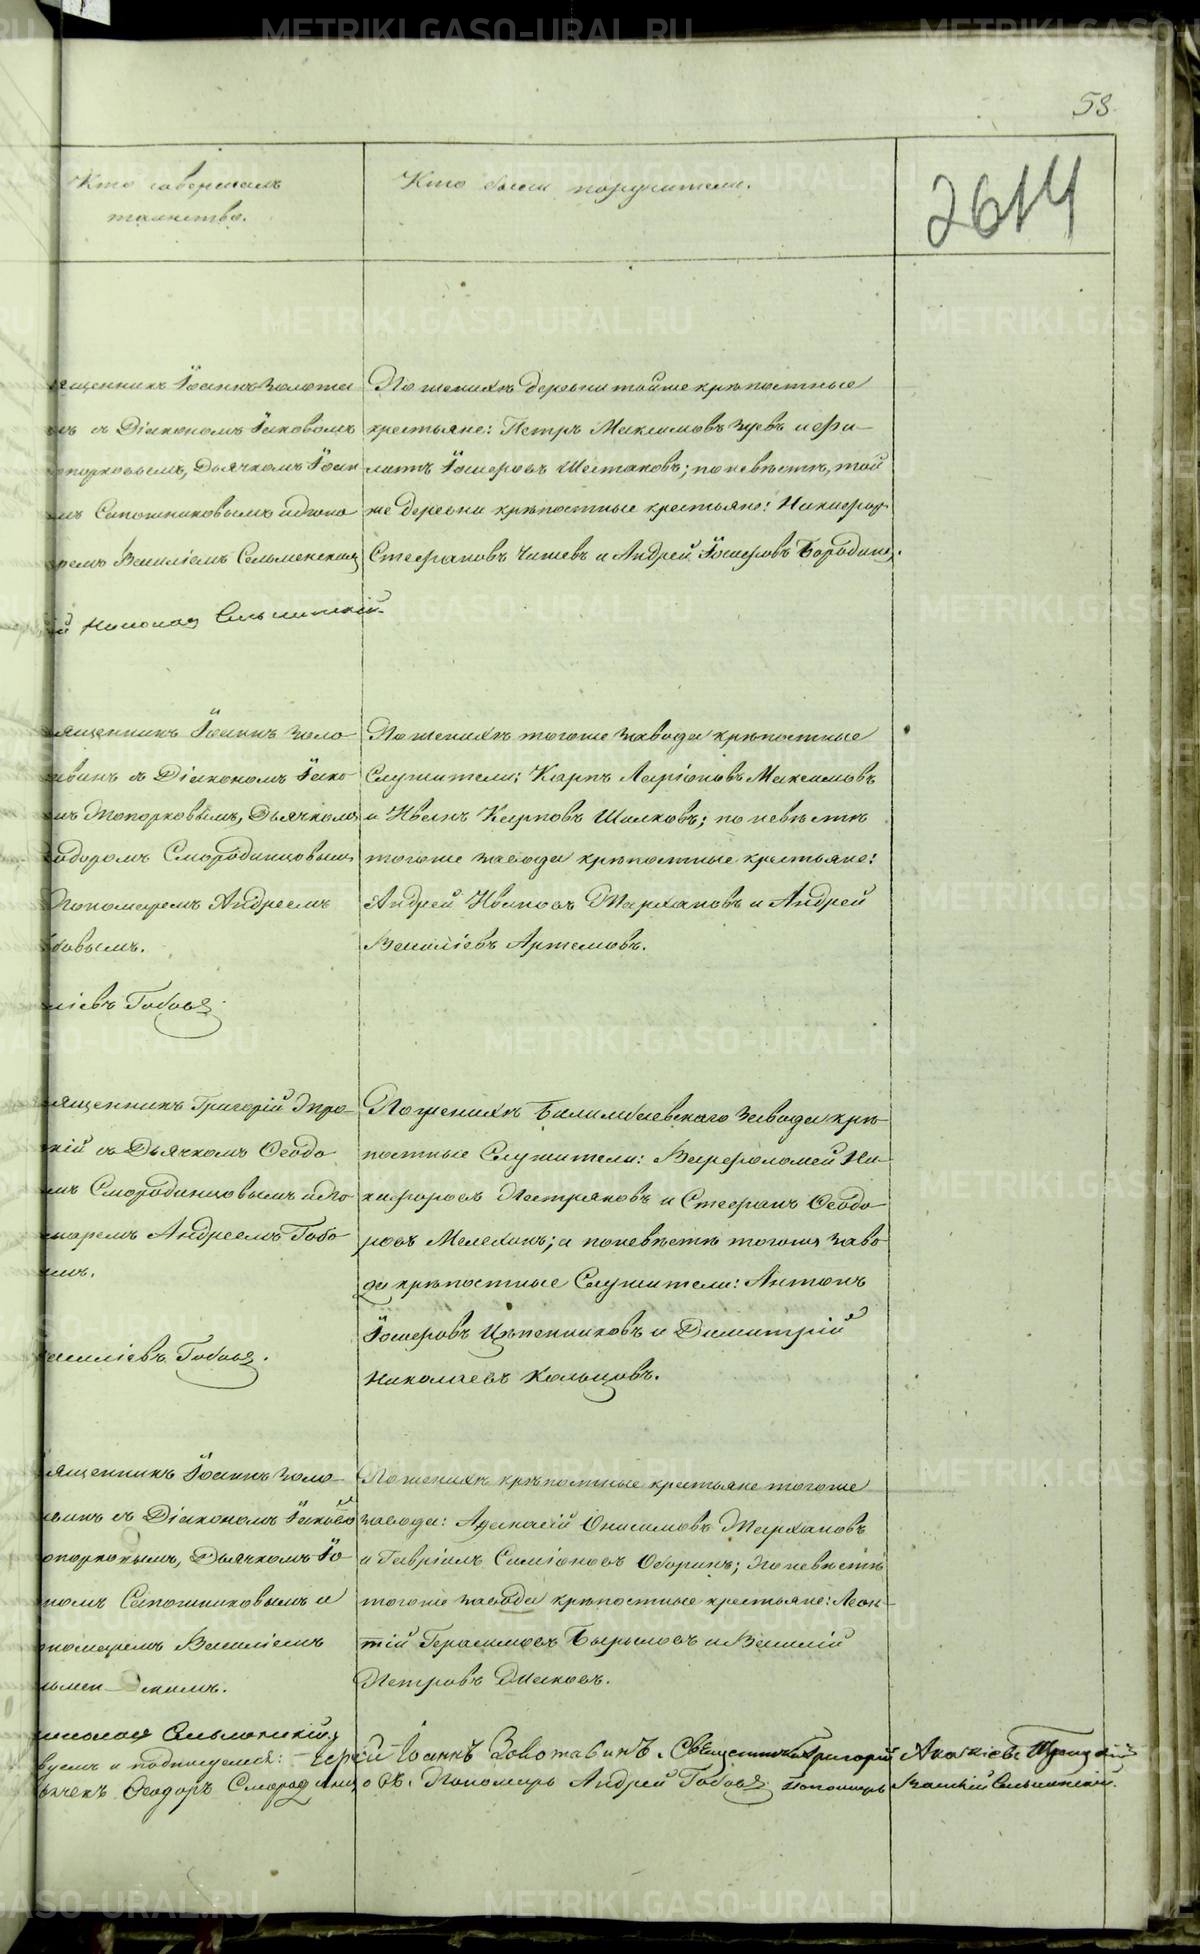 58
Кто совершалъ
таинство.
Кто были поручители.
2614
ященникъ Іоаннъ Золота
съ Діакономъ Іаковомъ
опорковымъ, Дьячкомъ Іоан
мъ Сапожниковымъ и Поно
ремъ Василіемъ Сельменским
По женихѣ деревни тойже крѣпостные
крестьяне: Петръ Максимовъ Зуевъ и Фи-
липъ Іосифовъ Шестаковъ; по невѣстѣ, той
же деревни крѣпостные крестьяне: Никифор
Стефановъ Чижевъ и Андрей Іосифовъ Бородин.
й Николай Сельменскій.
ященникъ Іоаннъ Золо
тавинъ съ Діакономъ Іако
мъ Топорковымъ, Дьячкомъ
одоромъ Смородинцовымъ
Пономаремъ Андреемъ
бовымъ.
По женихѣ тогоже завода крѣпостные
Служители: Карпъ Ларіоновъ Максимовъ
и Иванъ Карповъ Шилковъ; по невѣстѣ
тогоже завода крѣпостные крестьяне:
Андрей Ивановъ Тархановъ и Андрей
Василіевъ Артемовъ.
ліевъ Гобовъ.
ященникъ Григорій Тро-
кій съ Дьячкомъ Ѳеодо
мъ Смородинцовымъ и По
маремъ Андреемъ Гобо
мъ.
По женихѣ Билимбаевскаго завода крѣ
постные Служители: Варфоломей Ни-
кифоровъ Пестряковъ и Стефанъ Ѳеодо
ровъ Мелехинъ; а по невѣстѣ тогоже заво
да крѣпостные Служители: Антонъ
Іосифовъ Цѣпенниковъ и Димитрій
Николаевъ Кольцовъ.
асиліевъ Гобовъ.
ященникъ Іоаннъ Золо-
винъ съ Діакономъ Іаково
опорковымъ, Дьячкомъ Іо
номъ Сапожниковымъ и
ономаремъ Василіемъ
льменскимъ.
По женихѣ крѣпостные крестьяне тогоже
завода: Афанасій Онисимовъ Тархановъ
и Гавріилъ Симіоновъ Оборинъ; По невѣстѣ
тогоже завода крѣпостные крестьяне: Леон-
тій Герасимовъ Бырыловъ и Василій
Петровъ Дылковъ.
николай Сельменскій
вуемъ и подписуемся: Іерей Іоаннъ Золотавинъ. Священникъ Григорій Акакіевъ Троицкій
ьячекъ Ѳеодоръ Смородинцовъ. Пономарь Андрей Гобовъ Пономарь Василій Сельменскій.
METRIKI.GASO-URAL.RU